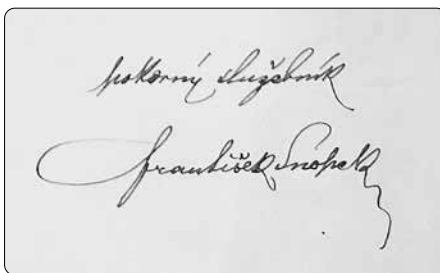 pokorný služebník
František Snopek